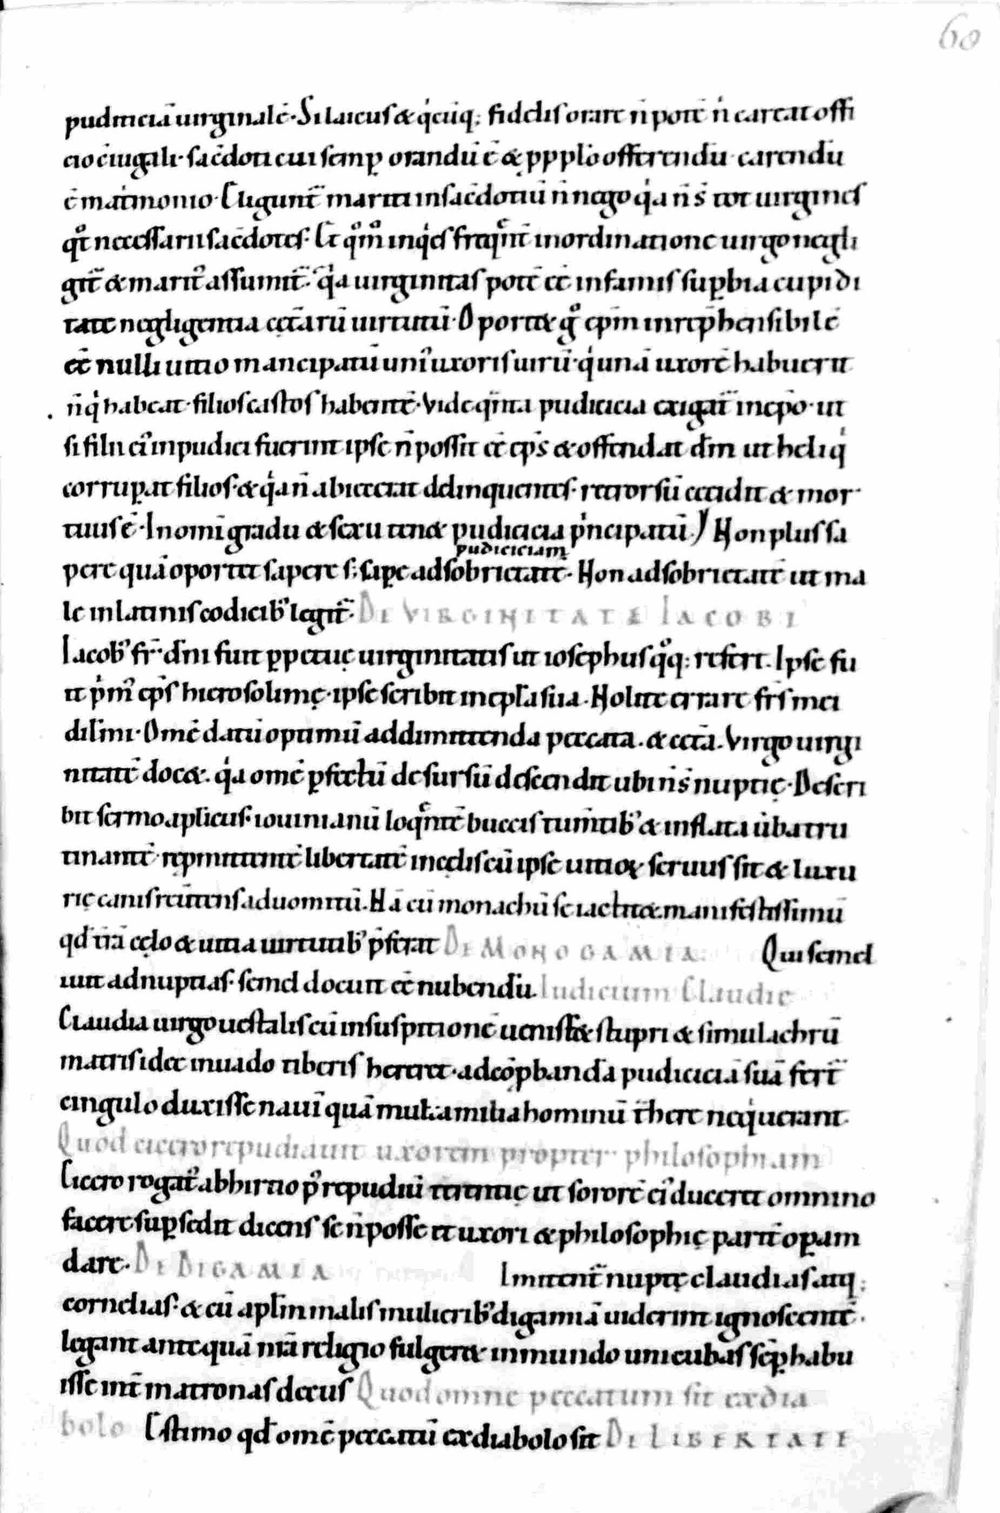 60
pudiciciā uirginalē· Si laicus & q̇cūq; fidelis orare n̄ potē n̄ careat offi
cio c̄iugali· sac̄doti cui semp̱ orandū ē & p ppl̄o offerendū carendū
ē mat̄monio· Eligunt̄ mariti in sac̄dotiū n̄ nego q̇a n̄ s̄ tot uirgines
qͦt necessarii sac̄dotes· Et qͦm̄ inq̇es freq̄nt̄ in ordinatione uirgo negli
git̄ & marit᷒ assumit̄· q̇a uirginitas potē ēē infamis sup̱bia cupidi
tate negligentia cęt̄arū uirtutū· Oportet gͦ ep̄m inrep̄hensibilē
ēē nulli uitio mancipatū uni᷒ uxoris uirū· q̇ unā uxorē habuerit
n̄ q̇ habeat· filios castos habentē· Vide q̄nta pudicicia exigat̄ in ep̄o· ut
si filii ei᷒ inpudici fuerint ipse n̄ possit ēē ep̄s & offendat dm̄ ut heli q̇
corrup̱at filios· & q̇a n̄ abiecerat delinquentes· retrorsū cecidit & mor
tuus ē· In omi gradu & sexu tenet pudicicia p̄ncipatū· Non plus sa
pudiciciam
pere quā oportet sapere s; sape ad sobrietatē· Non ad sobrietatē ut ma
le in latinis codicib᷒ legit̄· DE VIRGINITATE IACOBI
Iacob᷒ fr̄· dn̄i fuit p̱petuę uirginitatis ut iosephus qͦq; refert· Ipse fu
it p̄m᷒ ep̄s hierosolimę· ipse scribit in epl̄a sua· Nolite errare fr̄s mei
dil̄mi· Omē datū optimū ad dimittenda peccata· & cet̄a· Virgo uirgi
nitatē docet· q̇a omē p̱fectū desursū descendit ubi n̄ s̄ nuptię· Descri
bit sermo apl̄icus· iouinianū loq̄ntē buccis tum̄tib᷒ & inflata ūba tru
tinantē rep̱mittentē libertatē in cęlis cū ipse uitioꝝ seruus sit & luxu
rię canis reūtens ad uomitū· Nā cū monachū se iactitet manifestissimū
qd̄ t̄rā cęlo & uitia uirtutib᷒ p̄ferat DE MONOGAMIA Qui semel
iuit ad nuptias· semel docuit ēē nubendū Iudicium Claudie
Claudia uirgo uestalis cū in suspitionē uenisset stupri & simulachrū
matris idee in uado tiberis hereret· ad cōp̱bandā pudiciciā suā fert̄
cingulo duxisse nauī quā multa milia hominū t̄here neq̇uerant·
Quod cicero repudiauit uxorem propter philosophiam
Cicero rogat᷒ ab hirtio p᷒ repudiū terentię ut sororē ei᷒ duceret omnino
facere sup̱sedit dicens se n̄ posse et uxori & philosophię parit̄ op̱am
dare· DE DIGAMIA Imitent̄ nuptę claudias atq;
cornelias· & cū apl̄m malis mulierib᷒ digamiā uiderint ignoscentē·
legant antequā nr̄ā religio fulgeret in mundo unicubas sēp̱ habu
isse int̄ matronas decus Quod omne peccatum sit ex dia
bolo Estimo qd̄ omē peccatū ex diabolo sit DE LIBERTATE